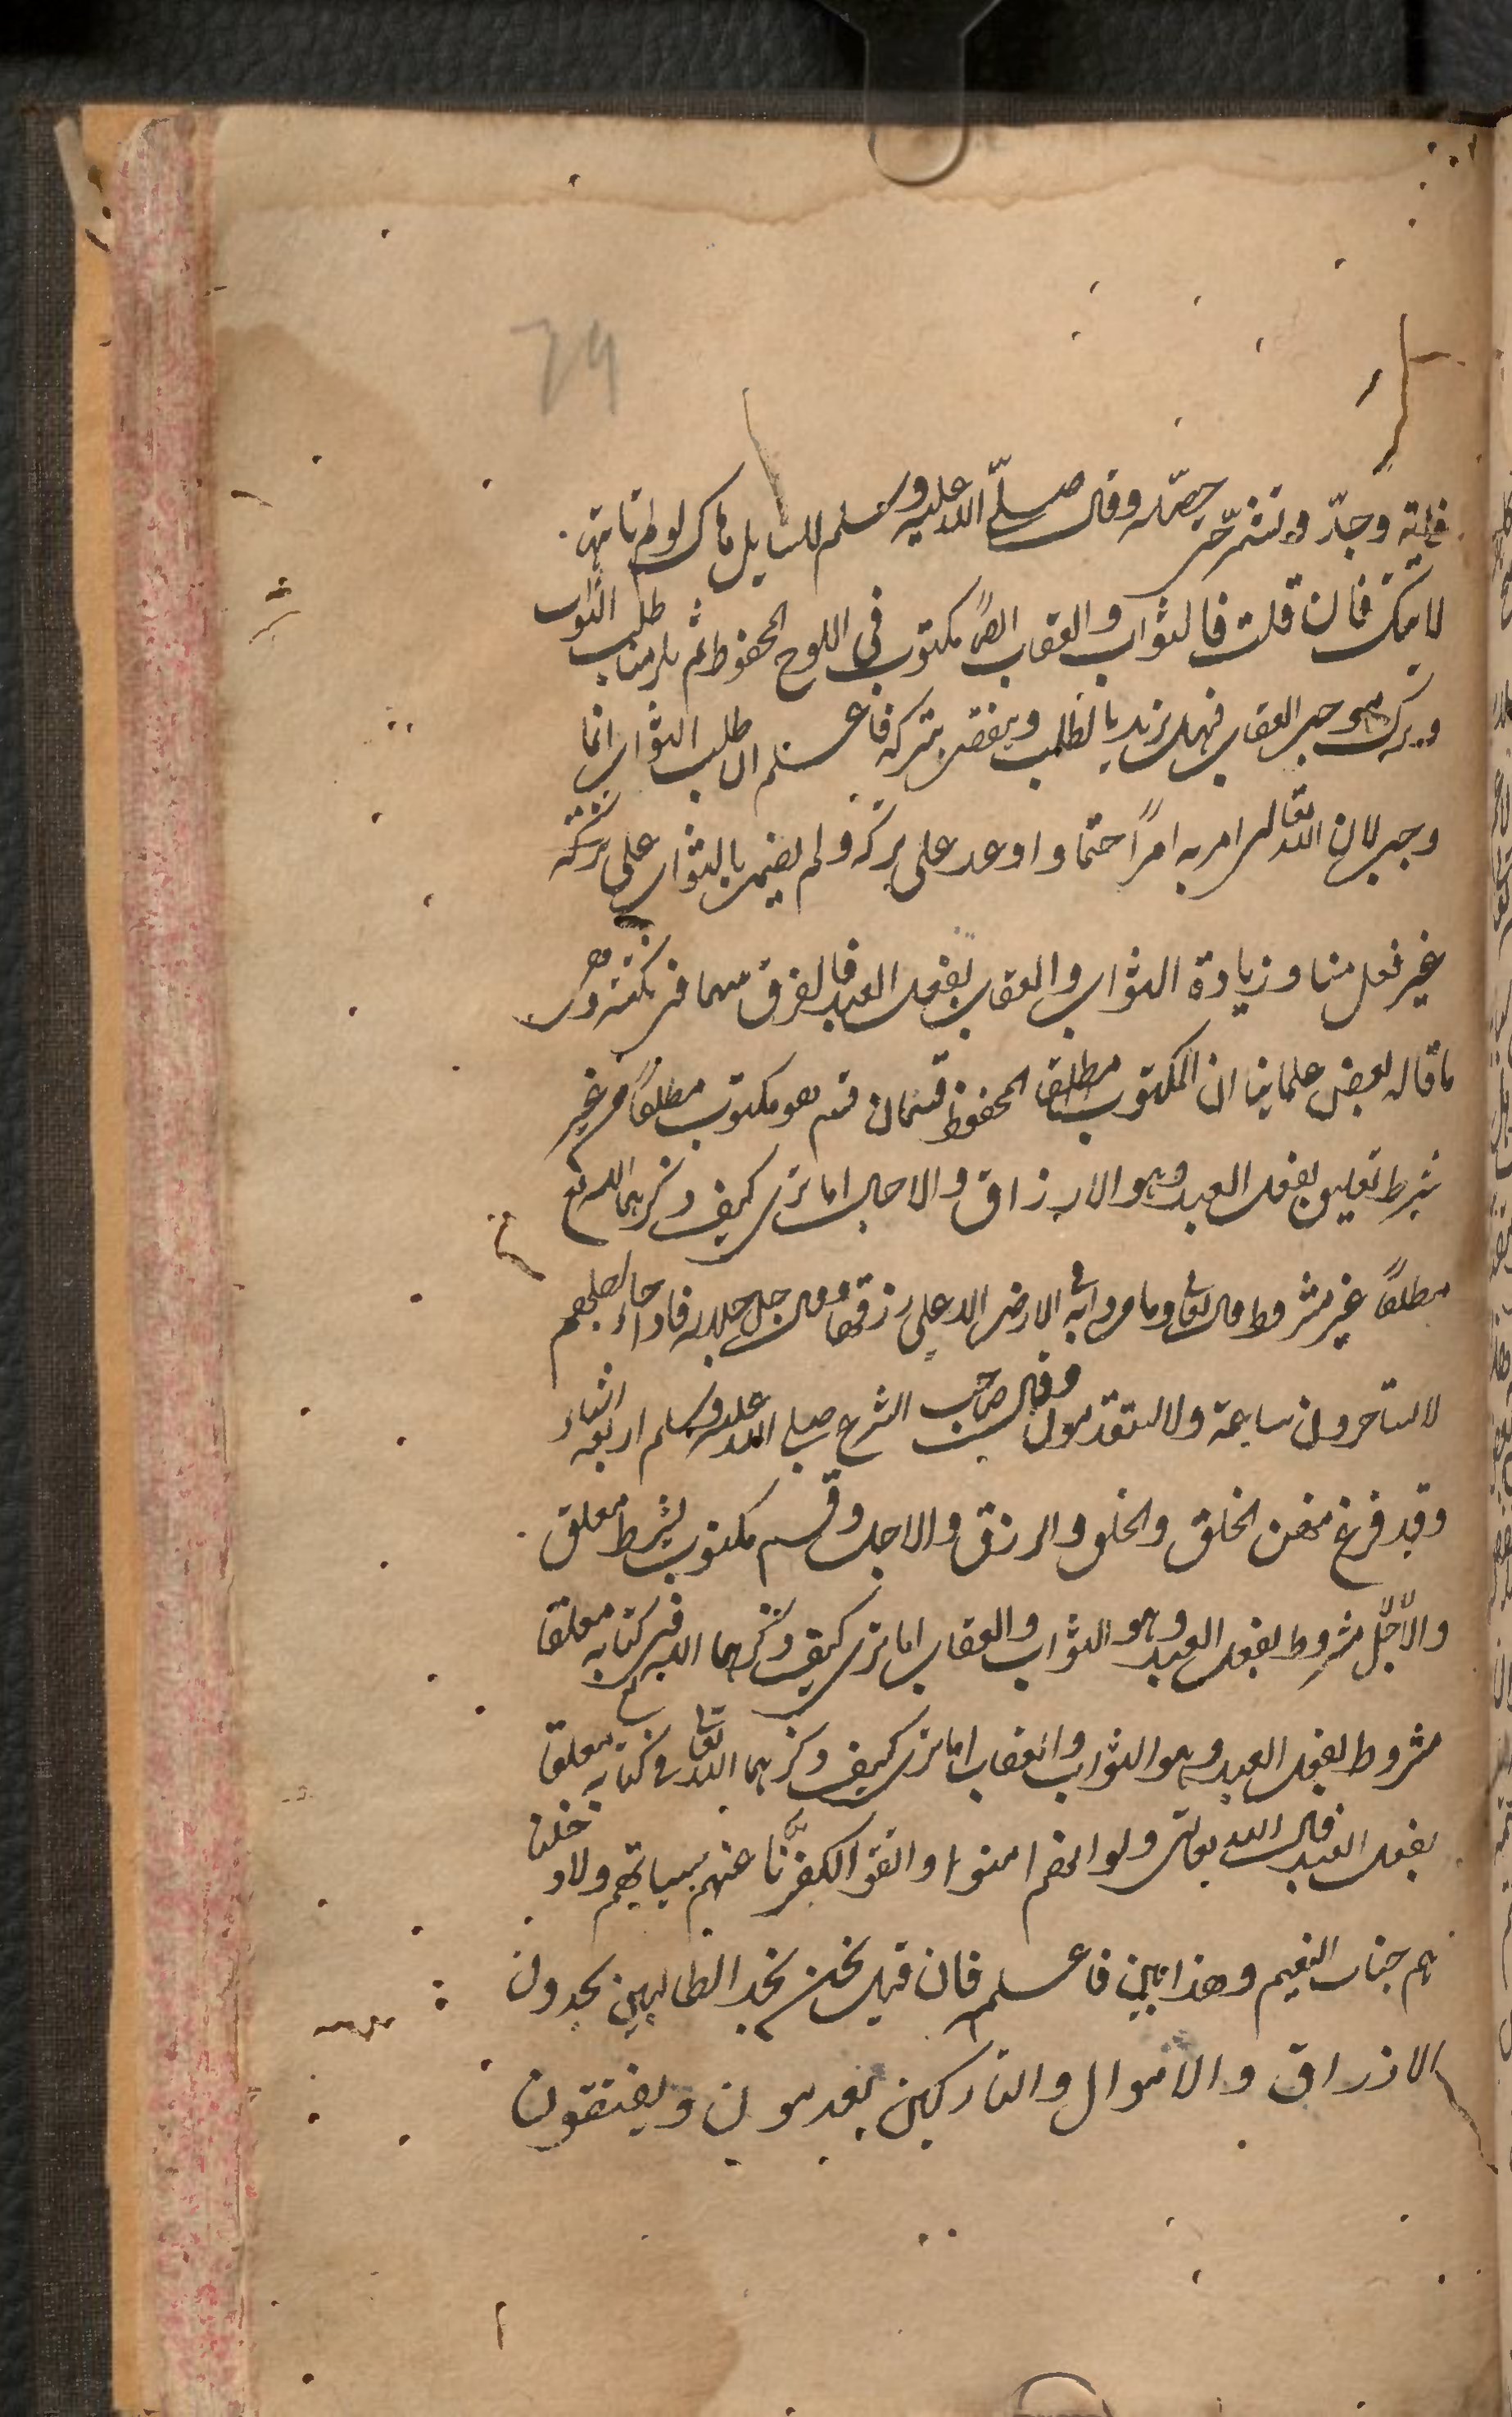 79
وجدّ وتشمّر حصّله وقال صلّى الله عليه وسلم للسايل هاك لو لم تاتها
لاتتك فان قلت فالثواب والعقاب ايضًا مكتوب في اللوح المحفوظ ثم يلزمنا طلب الثواب
وترك موجب العقاب فهل يزيد بالطلب وينقص بتركه فاعلم ان طلب الثواب انما
وجب لان الله تعالى امر به امرًا حتما واوعد على تركه ولم يضمن بالثواب على تركه
غير فعل منا وزيادة الثواب والعقاب بفعل العبد فالفرق بينهما في نكتة وهي
ما قاله بعض علماينا ان المكتوب مطلقا المحفوظ قسمان قسم هو مكتوب مطلقًا من غير
شرط تعليق بفعل العبد وهو الارزاق والاجال اما ترى كيف ذكرهما الله تع
مطلقًا غير مشروط قال تعالى وما من دابة في الارض الا على رزقها وقال جل جلاله فاذا جاء اجلهم
لا يستاخرون ساعة ولا يستقدمون وقال صاحب الشرع صلى الله عليه وسلم اربعه اشياء
وقد فرغ منهن الخلق والخلق والرزق والاجل وقسم مكتوب بشرط معلق
والاجّل مشروط بفعل العبد وهو الثواب والعقاب اما ترى كيف ذكرهما الله في كتابه معلقا
مشروط بفعل العبد وهو الثواب والعقاب اما ترى كيف ذكرهما الله تعالى في كتابه معلقا
بفعل العبد قال الله تعالى ولو انهم امنوا واتقوا لكفرّنا عنهم سيياتهم ولاد خلنا
هم جنات النعيم وهذا بين فاعلم فان قيل نحن نجد الطالبين يجدون
الارزاق والاموال والتاركين يعدمون ويفتقرون